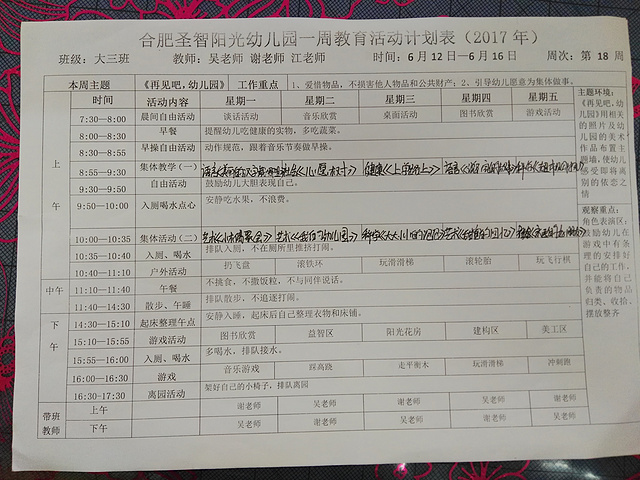 合肥圣智阳光幼儿园一周教育活动计划表（2017 年）
班级：大三班 教师：吴老师 谢老师 江老师 时间：6 月 12 日—6 月 16 日 周次：第 18 周
本周主题 《再见吧，幼儿园》 工作重点 1、爱惜物品，不损害他人物品和公共财产；2、引导幼儿愿意为集体做事。
时间 活动内容 星期一 星期二 星期三 星期四 星期五
上午
7:30—8:00 晨间自由活动 谈话活动 音乐欣赏 桌面活动 图书欣赏 游戏活动
8:00—8:30 早餐 提醒幼儿吃健康的实物，多吃蔬菜。
8:30—8:55 早操自由活动 动作规范，跟着音乐节奏做早操。
8:55—9:30 集体教学（一）
9:30—9:50 自由活动 鼓励幼儿大胆表现自己。
9:50—10:00 入厕喝水点心 安静吃水果，不浪费。
10:00—10:35 集体活动（二）
10:35—10:40 入厕、喝水 排队入厕，不在厕所里推挤打闹。
10:40—11:10 户外活动 扔飞盘 滚铁环 玩滑滑梯 滚轮胎 玩飞行棋
中午
11:10—11:40 午餐 不挑食，不撒饭粒，不与同伴说话。
11:40—14:30 散步、午睡 排队散步，不追逐打闹。
下午
14:30—15:10 起床整理午点 安静入睡，起床后自己整理衣物和床铺。
15:10—15:55 游戏活动 图书欣赏 益智区 阳光花房 建构区 美工区
15:55—16:00 入厕、喝水 多喝水，排队接水。
16:00—16:30 游戏 音乐游戏 踩高跷 走平衡木 玩滑滑梯 冲刺跑
16:30-17:30 离园活动 架好自己的小椅子，排队离园
带班教师
上午 谢老师 吴老师 谢老师 吴老师 谢老师
下午 吴老师 谢老师 吴老师 谢老师 吴老师
主题环境：
《再见吧，幼
儿园》用相关
的照片及幼
儿园的美术
作品布置主
题墙，使幼儿
感受即将离
别的依恋之
情
观察重点：
角色表演区：
鼓励幼儿在
游戏中有条
理的安排好
自己的工作，
并能将自己
负责的物品
归类、收拾、
摆放整齐